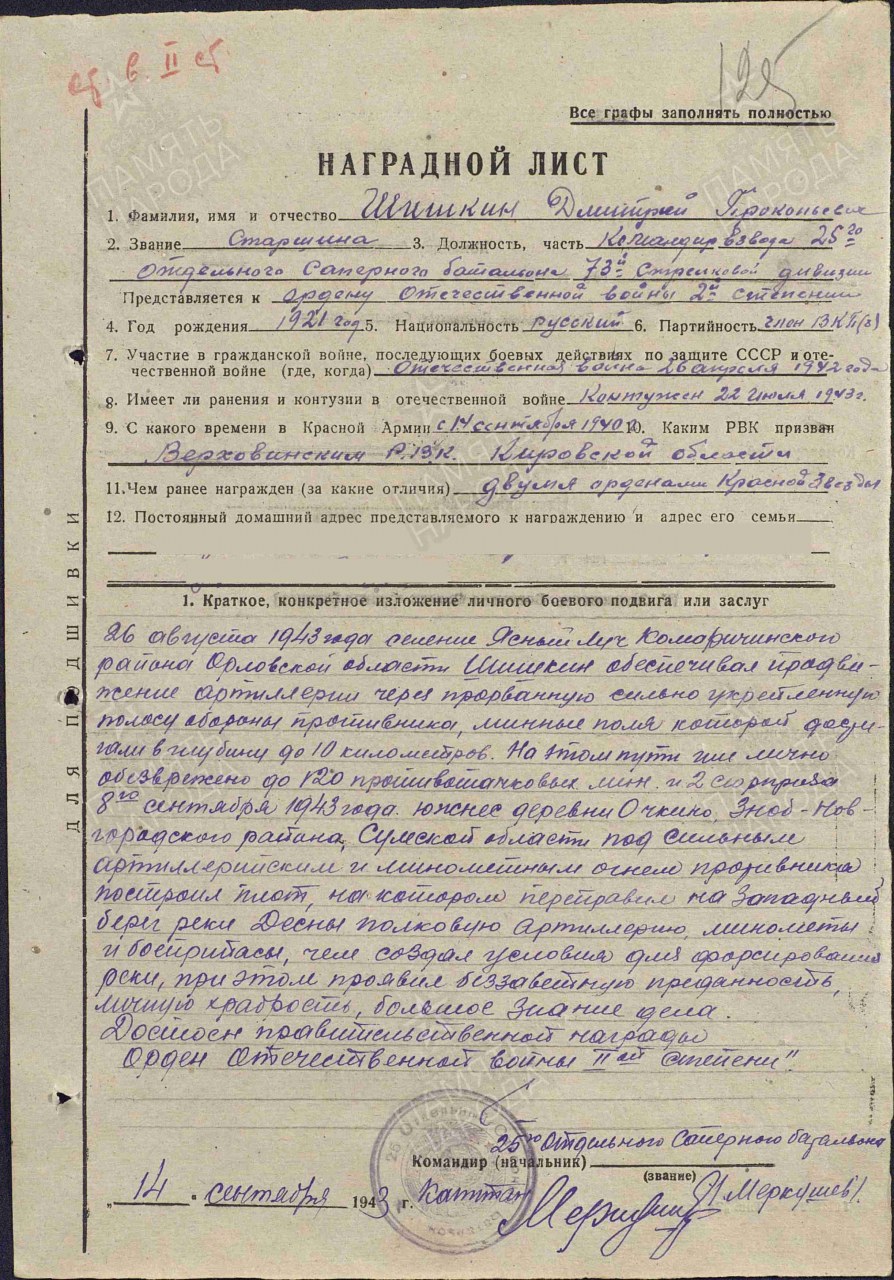 125
Все графы заполнять полностью
НАГРАДНОЙ ЛИСТ
1. Фамилия, имя и отчество Шишкин Дмитрий Прокопьевич
2. Звание Старшина 3. Должность, часть Командир взвода 25го
отдельного Саперного батальона 73й Стрелковой дивизии
Представляется к ордену Отечественной войны 2й степени
4. Год рождения 1921 год 5. Национальность русский 6. Партийность член ВКП(б)
7. Участие в гражданской войне, последующих боевых действиях по защите СССР и оте-
чественной войне (где, когда) Отечественная война 26 апреля 1942 года
8. Имеет ли ранения и контузии в отечественной войне Контужен 22 июля 1943 г.
9. С какого времени в Красной Армии с 14 сентября 1940 10. Каким РВК призван
Верховинским Р.В.К. Кировской области
11. Чем ранее награжден (за какие отличия) двумя орденами Красной Звезды
12. Постоянный домашний адрес представляемого к награждению и адрес его семьи
1. Краткое, конкретное изложение личного боевого подвига или заслуг
26 августа 1943 года селение Ясный Луч Комаричинского
района Орловской области Шишкин обеспечивал продви-
жение артиллерии через прорванную сильно укрепленную
полосу обороны противника, минные поля которой дости-
гали в глубину до 10 километров. На этом пути им лично
обезврежено до 120 противотанковых мин. и 2 сюрприза
8го сентября 1943 года. южнее деревни Очкино, Зноб-Нов-
городского района, Сумской области под сильным
артиллерийским и минометным огнем противника
построил плот, на котором переправил на Западный
берег реки Десны полковую артиллерию, минометы
и боеприпасы, чем создал условия для форсирования
реки, при этом проявил беззаветную преданность,
личную храбрость, большое знание дела.
Достоен правительственной награды
Орден Отечественной войны IIой степени"
25го Отдельного Саперного батальона
Командир (начальник)
(звание)
„14" сентября 1943 г. Капитан /Меркушев/.
ДЛЯ ПОДШИВКИ
ПАМЯТЬ НАРОДА